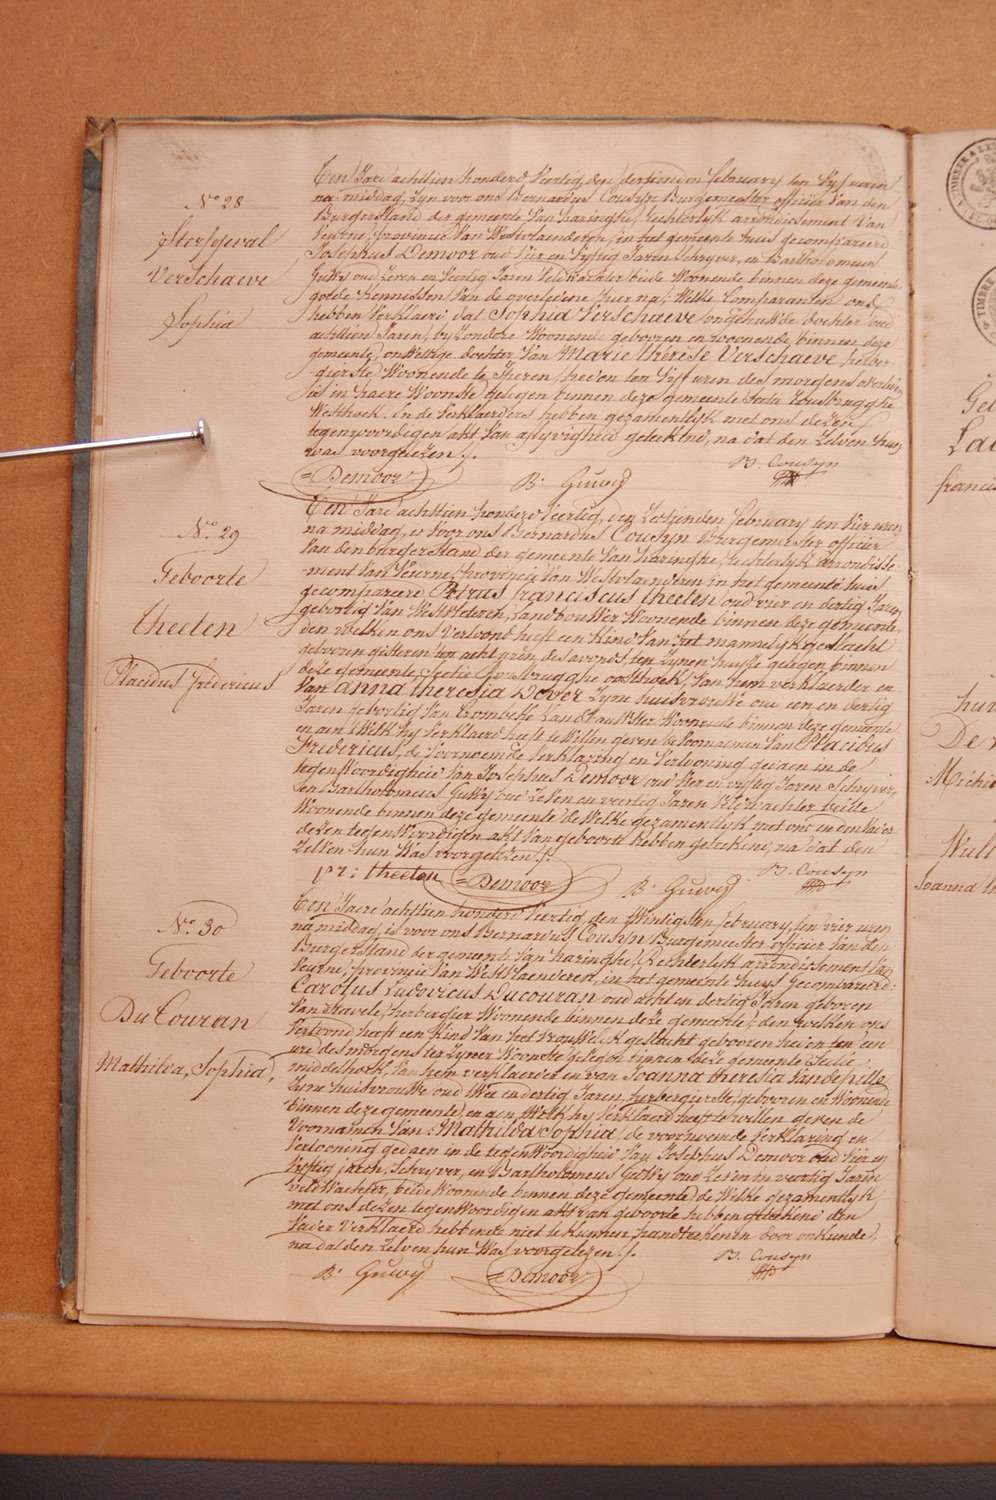 N.o 28
Sterfgeval
Verschaeve
Sophia
Een Jare achttien honderd Veertig, den dertienden february ten vyf uren
na middag, zyn voor ons Bernardus Cousyn Burgemeester officier van den
Burgerstand der gemeente van haringhe, rechterlyk arrondissement Van
Veurne, provincie Van Westvlaenderen, in het gemeente huis gecompareerd
Josephus Demoor oud vier en vyftig Jaren Schryver, en Bartholomeus
Guwy oud Zeven en Veertig Jaren Veldwachter beide Woonende binnen deze gemeente
goede kennissen Van de overledene hier na; Welke Comparanten ons
hebben Verklaerd dat Sophia Verschaeve ongehuwde dochter oud
achttien Jaren, byzondere Woonende gebooren en woonende binnen deze
gemeente, onwettige dochter Van Marie Thérèse Verschaeve herber-
-gierste Woonende te Iperen, heeden ten vyf uren des morgens overleden
is in haere Woonste gelegen binnen deze gemeente Sectie Rousbrugghe
Westhoek. En de Verklaerders hebben gezamentlyk met ons dezen
tegenwoordigen akt Van aflyvigheid geteekend, na dat den zelven hun
was voorgelezen ./.
B. Cousyn
Demoor
B. Guwy
N.o 29
Geboorte
theeten
Placidus fredericus
Een Jare achttien honderd Veertig, den Zestienden february ten vier uren
na middag, is voor ons Bernardus Cousyn Burgemeester officier
Van den burgerstand der gemeente Van haringhe, rechterlyk arrondisse-
-ment Van Veurne, provincie Van Westvlaenderen, in het gemeente huis
gecompareerd Petrus franciscus theeten oud vier en dertig Jaren
gebortig Van Westvleteren, Landbouwer Woonende binnen deze gemeente,
den welken ons Vertoond heeft een kind Van het mannelyk geslacht
gebooren gisteren ten acht uren des avonds, ten zynen huyse gelegen binnen
deze gemeente, Sectie Rousbrugghe oosthoek, Van hem verklaerder en
Van anna theresia Dever zyne huisvrouwe oud een en dertig
Jaren gebortig Van Crombeke Landbouwster Woonende binnen deze gemeente
en aen t Welk hy Verklaerd heeft te Willen geven de Voornaemen Van Placidus
Fredericus, de Voornoemde Verklaring en Vertooning gedaen in de
tegenWoordigheid Van Josephus Demoor oud vier en vyftig Jaren Schryver,
en Bartholomeus Guwy oud Zeven en veertig Jaren Veldwachter beide
Woonende binnen deze gemeente de Welke gezamentlyk met ons en den Vader
dezen tegenWoordigen akt Van geboorte hebben geteekend, na dat den
Zelven hun Was voorgelezen ./.
B. Cousyn
theeten
Demoor
B. Guwy
N.o 30
Geboorte
DuCouran
Mathilda, Sophia,
Een Jaere achttien honderd Veertig, den twintigsten february, ten vier uren
na middag, is voor ons Bernardus Cousyn Burgemeester officier Van den
Burgerstand der gemeente Van haringhe, Rechterlyk arrondissement Van
Veurne, provincie Van Westvlaenderen, in het gemeente huys gecompareerd:
Carolus Ludovicus Ducouran oud acht en dertig Jaren geboren
Van Stavele, herbergier Woonende binnen deze gemeente, den welken ons
Vertoond heeft een kind Van het vrouwelyk geslacht gebooren heden ten een
ure des morgens ten zyner Woonste gelegen binnen deze gemeente Sectie
middelhoek, Van hem verklaerder en van Joanna theresia Vandeputte
Zyne huisvrouwe oud twee en dertig Jaren, herbergierste, gebooren en Woonende
binnen deze gemeente, en aen Welk hy Verklaerd heeft te willen geven de
Voornamen Van: Mathilda Sophia, de voornoemde Verklaring en
Vertooning gedaen in de tegenWoordigheid Van Josephus Demoor oud vier en
vyftig jaren, Schryver, en Bartholomeus Guwy oud Zeven en veertig Jaren
veldWachter, beide Woonende binnen deze gemeente, de Welke gezamentlyk
met ons dezen tegenWoordigen akt van geboorte hebben geteekend den
Vader Verklaerd hebbende niet te kunnen handteekenen door onkunde,
na dat den Zelven hun Was voorgelezen ./.
B. Cousyn
B. Guwy
Demoor
TIMBRE
franci
De
Michi
Joanna